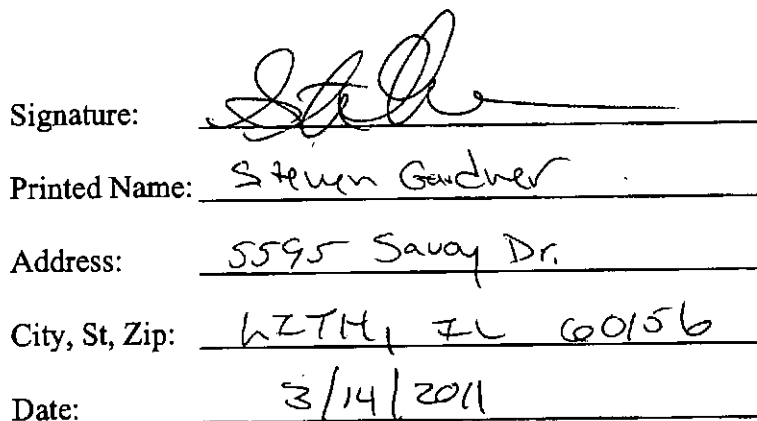 Signature:
Printed Name: Steven Gardner
Address: 5595 Savoy Dr.
City, St, Zip: LITH, IL 60156
Date: 3/14/2011